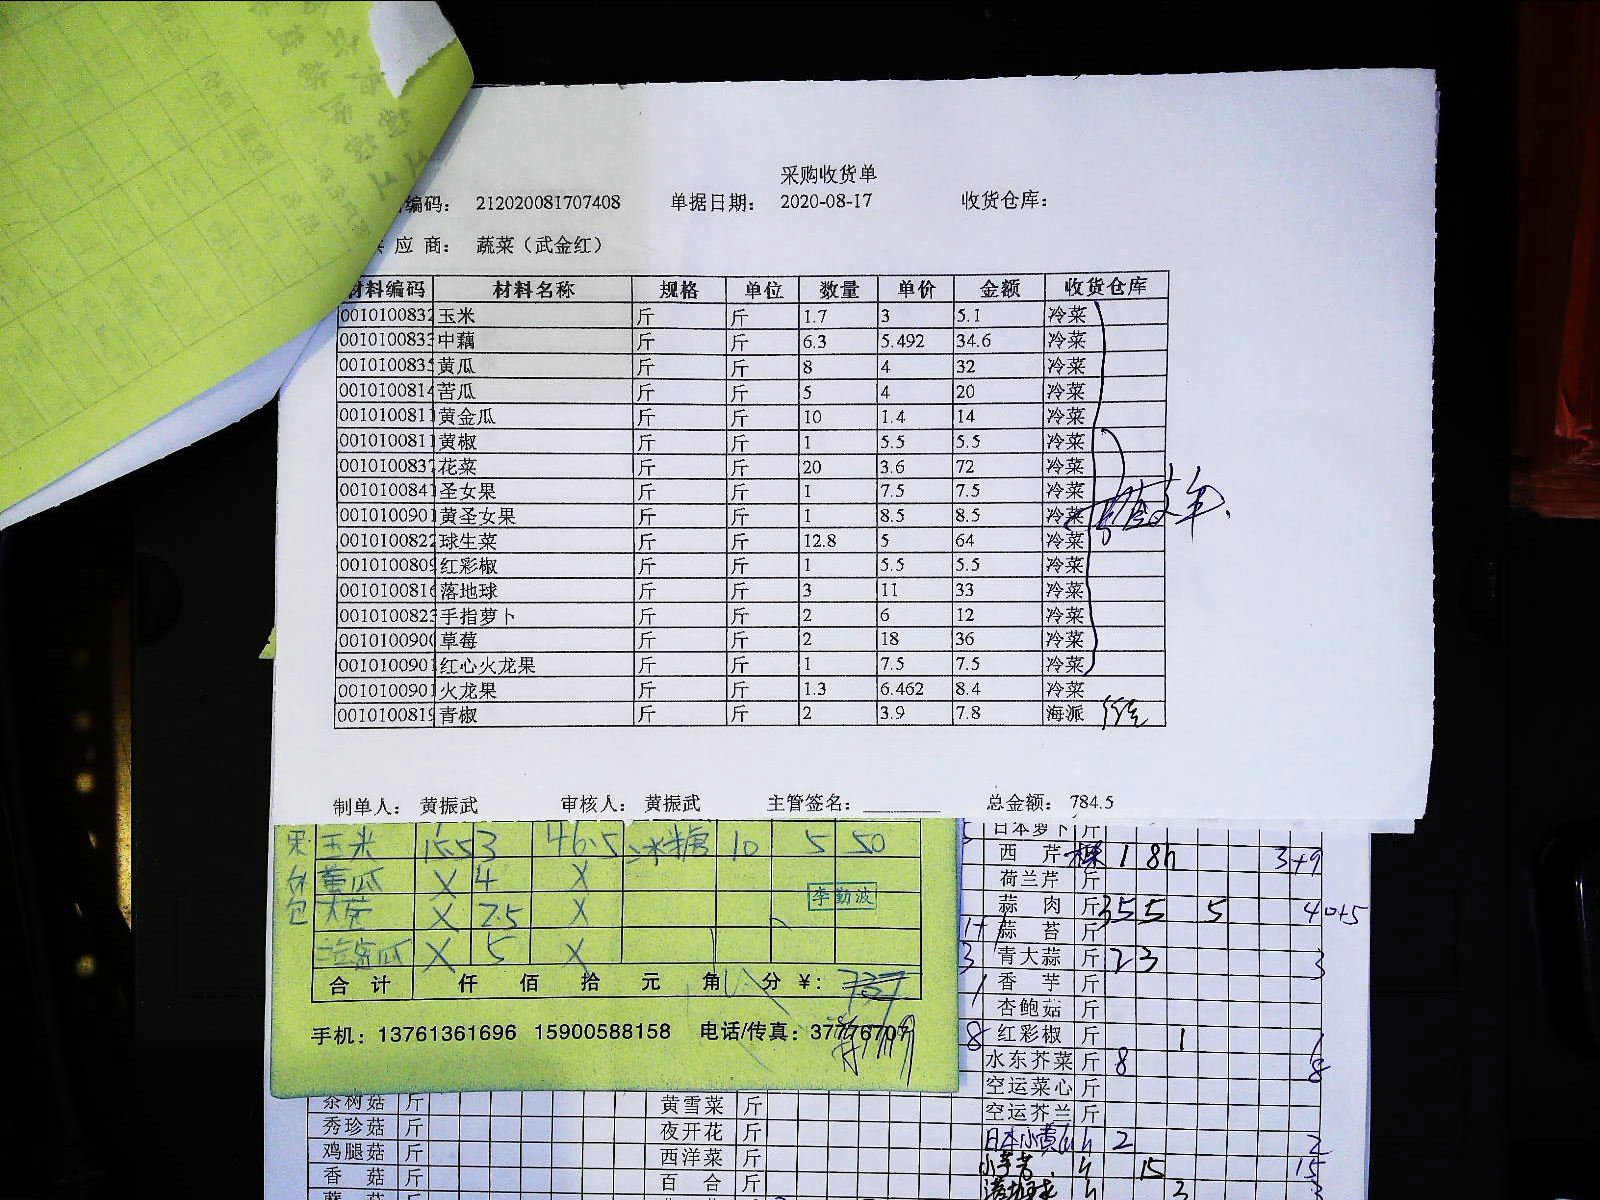 采购收货单
编码： 212020081707408 单据日期： 2020-08-17 收货仓库：
应 商： 蔬菜（武金红）
材料编码 材料名称 规格 单位 数量 单价 金额 收货仓库
001010083 玉米 斤 斤 1.7 3 5.1 冷菜
001010083 中藕 斤 斤 6.3 5.492 34.6 冷菜
001010083 黄瓜 斤 斤 8 4 32 冷菜
001010081 苦瓜 斤 斤 5 4 20 冷菜
001010081 黄金瓜 斤 斤 10 1.4 14 冷菜
001010081 黄椒 斤 斤 1 5.5 5.5 冷菜
001010083 花菜 斤 斤 20 3.6 72 冷菜
001010084 圣女果 斤 斤 1 7.5 7.5 冷菜
001010090 黄圣女果 斤 斤 1 8.5 8.5 冷菜
001010082 球生菜 斤 斤 12.8 5 64 冷菜
001010080 红彩椒 斤 斤 1 5.5 5.5 冷菜
001010081 落地球 斤 斤 3 11 33 冷菜
001010082 手指萝卜 斤 斤 2 6 12 冷菜
001010090 草莓 斤 斤 2 18 36 冷菜
001010090 红心火龙果 斤 斤 1 7.5 7.5 冷菜
001010090 火龙果 斤 斤 1.3 6.462 8.4 冷菜
001010081 青椒 斤 斤 2 3.9 7.8 海派
制单人： 黄振武 审核人： 黄振武 主管签名： 总金额： 784.5
玉米 15.5 3 46.5 冰糖 10 5 50
黄瓜 X 4 X
X 2.5 X
李勤波
X 5 X
合 计 仟 佰 拾 元 角 分 ￥： 737
手机：13761361696 15900588158 电话/传真：37776707
日本萝卜 斤
西 芹 1 8 3+9
荷兰芹 斤
蒜 肉 斤 35 5 5 40+5
蒜 苔 斤
青大蒜 斤 2 3 3
香 芋 斤
杏鲍菇 斤
红彩椒 斤 1 1
水东芥菜 斤 8 8
空运菜心 斤
空运芥兰 斤
日本小黄瓜 2 2
小芋艿 15 15
落地球 3
茶树菇 斤 黄雪菜 斤
秀珍菇 斤 夜开花 斤
鸡腿菇 斤 西洋菜 斤
香 菇 斤 百 合 斤